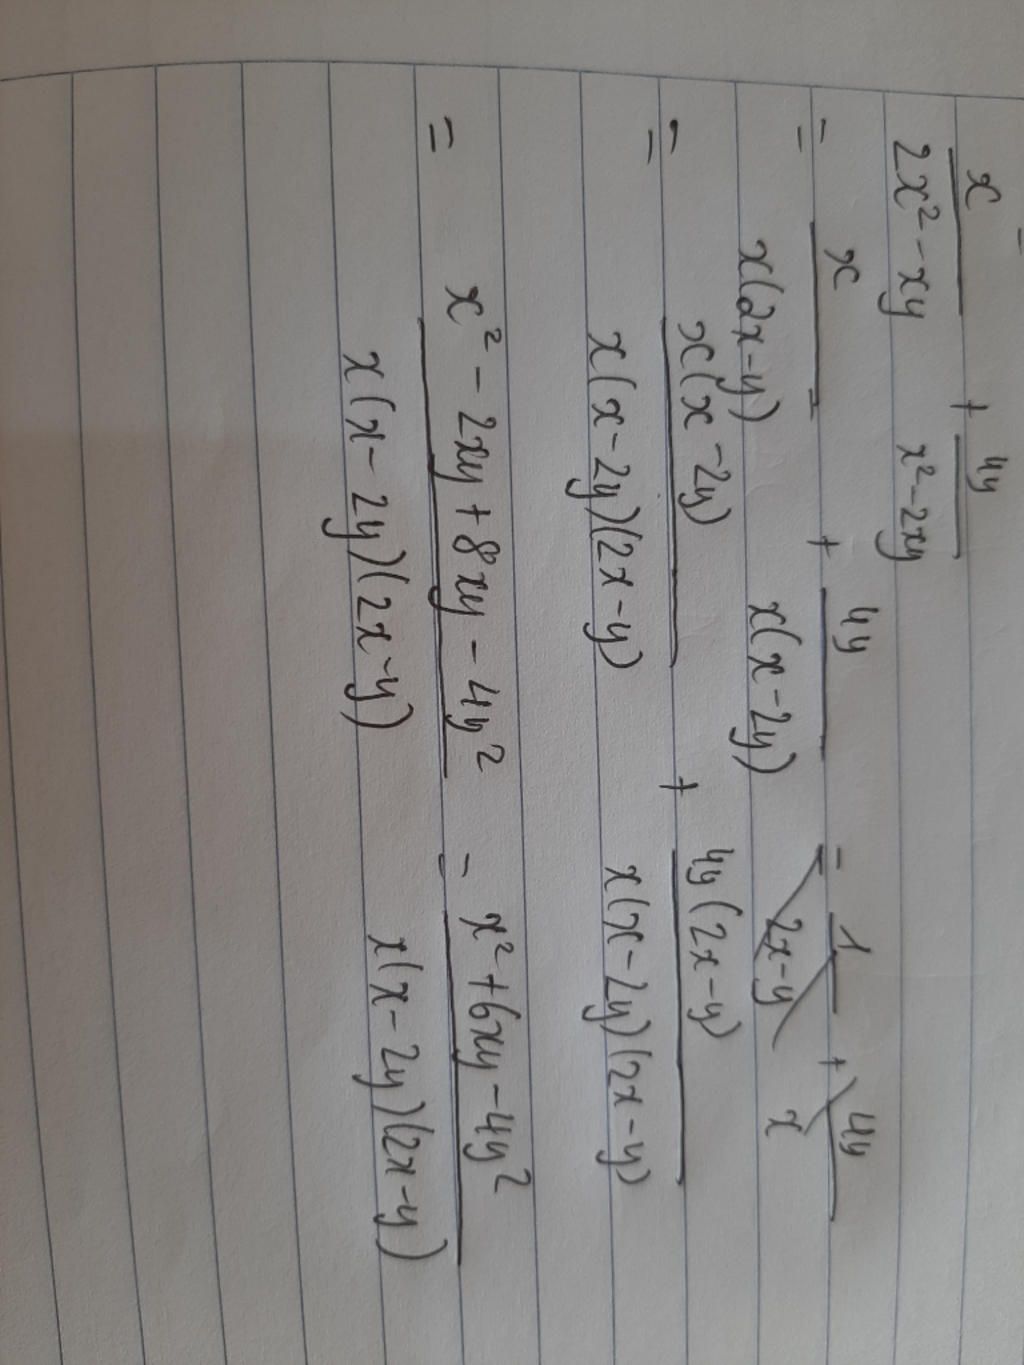 x/(2x² - xy) + 4y/(x² - 2xy)
= x/(x(2x-y)) + 4y/(x(x-2y)) = 1/(2x-y) + 4y/x
= x(x-2y)/(x(x-2y)(2x-y)) + 4y(2x-y)/(x(x-2y)(2x-y))
= (x² - 2xy + 8xy - 4y²)/(x(x-2y)(2x-y)) = (x² + 6xy - 4y²)/(x(x-2y)(2x-y))